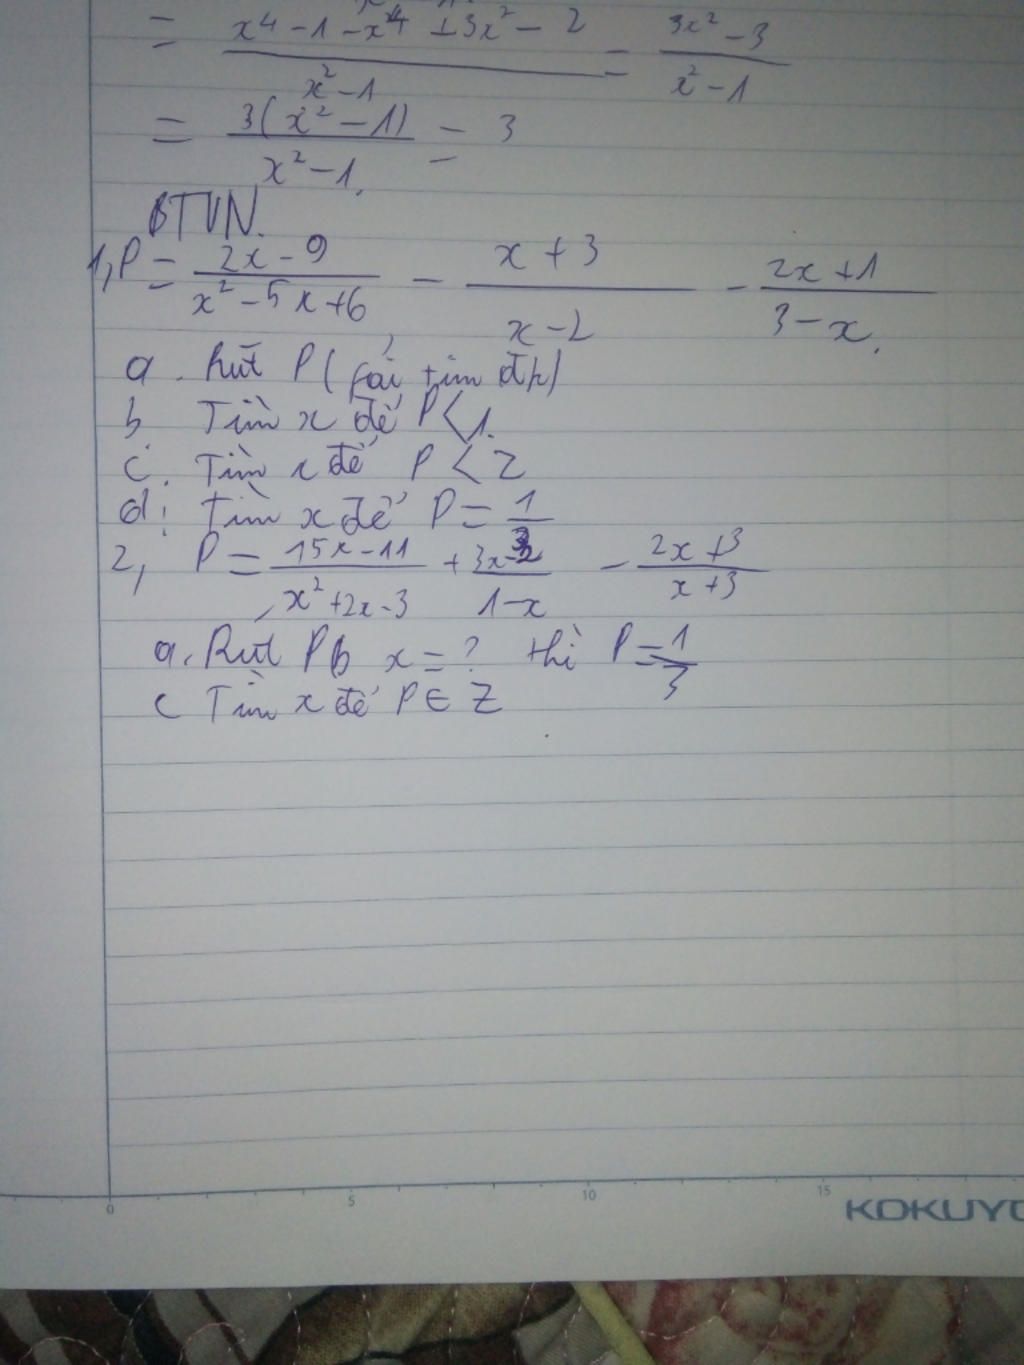 = (x^4 - 1 - x^4 + 3x² - 2)/(x² - 1) = (3x² - 3)/(x² - 1)
= 3(x² - 1)/(x² - 1) = 3
BTVN.
1, P = (2x - 9)/(x² - 5x + 6) - (x + 3)/(x - 2) - (2x + 1)/(3 - x).
a. Rút P (fải tìm đk)
b Tìm x để P < 1.
c. Tìm x để P < Z
d. Tìm x để P = 1/3
2, P = (15x - 11)/(x² + 2x - 3) + (3x - 2)/(1 - x) - (2x + 3)/(x + 3)
a. Rút P b x = ? thì P = 1/3
c Tìm x để P ∈ Z
0 5 10 15
KOKUYO